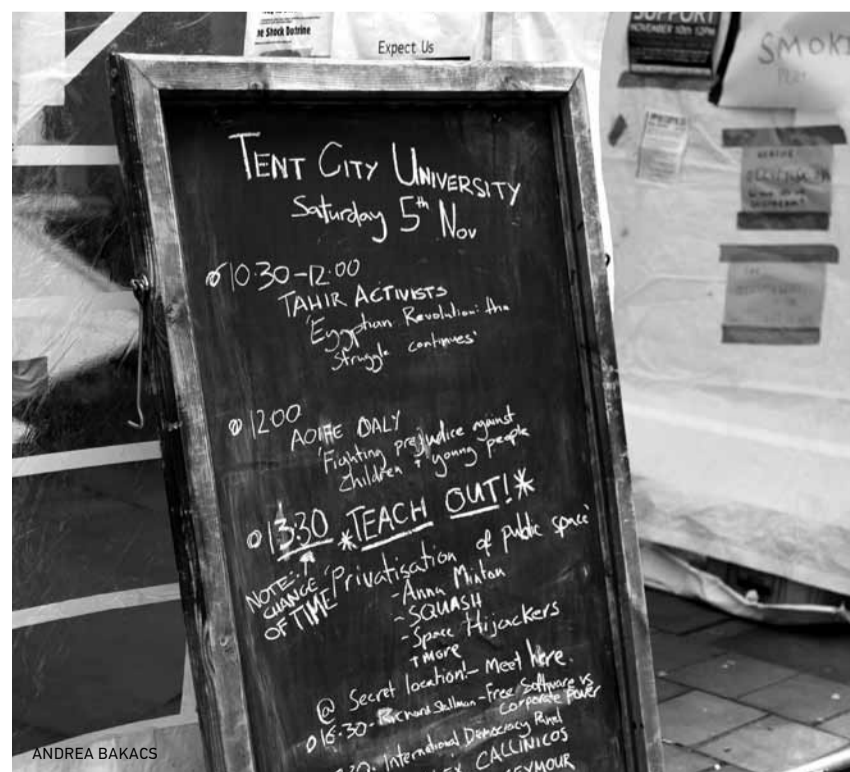 he Shock Doctrine
Expect Us
SUPPORT
NOVEMBER 10th 12PM
SMOKI
TENT CITY UNIVERSITY
Saturday 5th Nov
10:30-12:00
TAHIR ACTIVISTS
'Egyptian Revolution: the
struggle continues'
@ 12:00
AOIFE DALY
'Fighting prejudice against
children + young people
@ 13:30 *TEACH OUT!*
NOTE:
CHANGE
OF TIME
'Privatisation of public space'
- Anna Minton
- SQUASH
- Space Hijackers
+ MORE
@ Secret location! - Meet here.
@ 16:30 - Richard Stallman - Free Software vs
corporate power
30 - International Democracy Panel
EX CALLINICOS
EYMOUR
ANDREA BAKACS